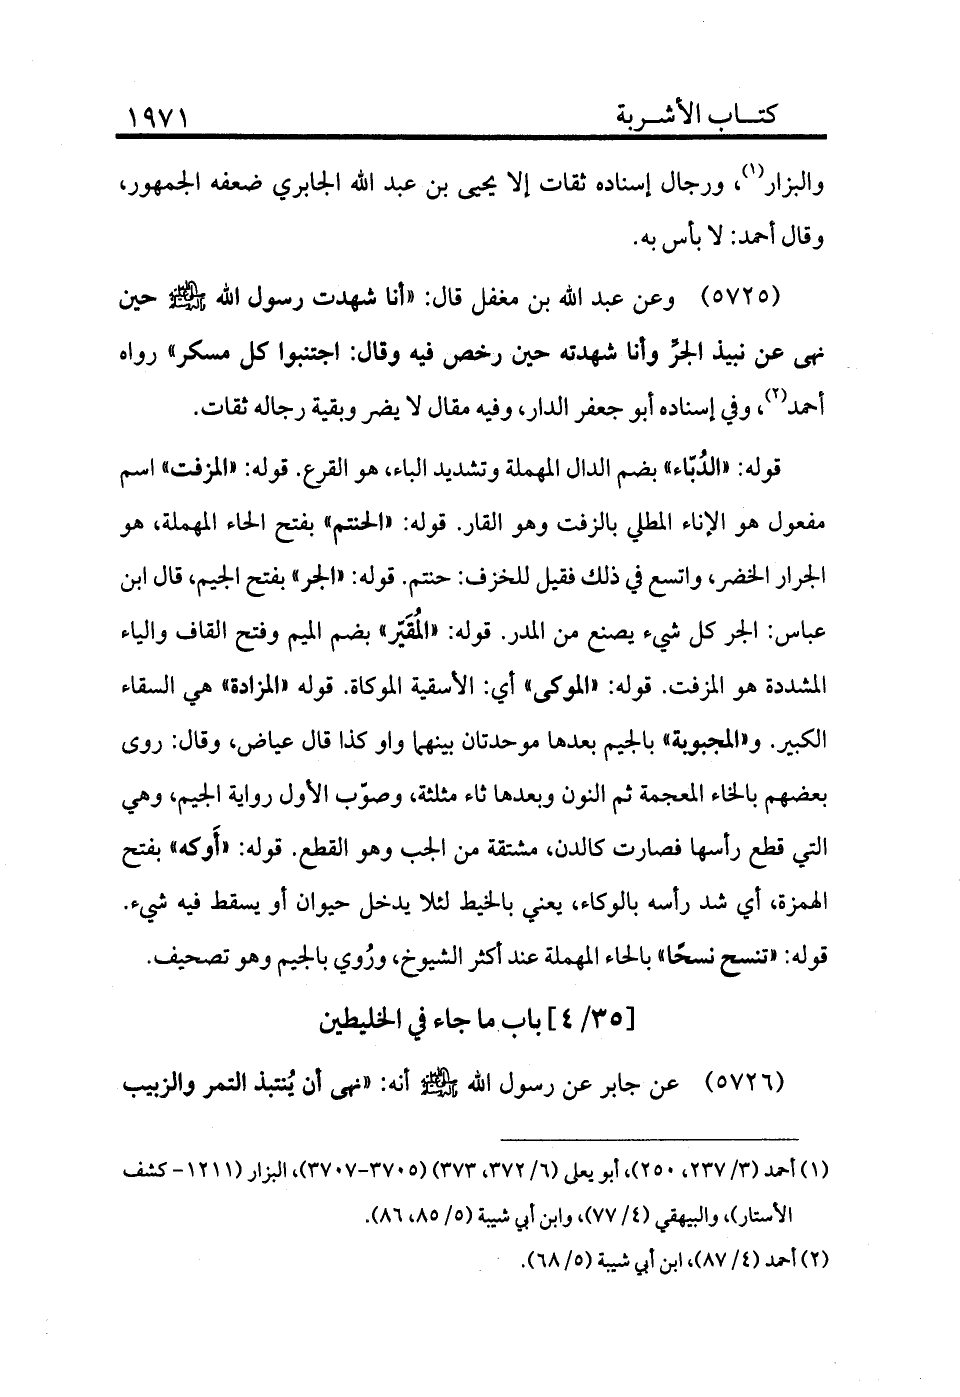 كتـــاب الأشـــربة ١٩٧١
والبزار(١)، ورجال إسناده ثقات إلا يحيى بن عبد الله الجابري ضعفه الجمهور،
وقال أحمد: لا بأس به.
(٥٧٢٥) وعن عبد الله بن مغفل قال: «أنا شهدت رسول الله ﷺ حين
نهى عن نبيذ الجرِّ وأنا شهدته حين رخص فيه وقال: اجتنبوا كل مسكر» رواه
أحمد(٢)، وفي إسناده أبو جعفر الدار، وفيه مقال لا يضر وبقية رجاله ثقات.
قوله: «الدُبّاء» بضم الدال المهملة وتشديد الباء، هو القرع. قوله: «المزفت» اسم
مفعول هو الإناء المطلي بالزفت وهو القار. قوله: «الحنتم» بفتح الحاء المهملة، هو
الجرار الخضر، واتسع في ذلك فقيل للخزف: حنتم. قوله: «الجر» بفتح الجيم، قال ابن
عباس: الجر كل شيء يصنع من المدر. قوله: «المُقَيّر» بضم الميم وفتح القاف والياء
المشددة هو المزفت. قوله: «الموكى» أي: الأسقية الموكاة. قوله «المزادة» هي السقاء
الكبير. و«المجبوبة» بالجيم بعدها موحدتان بينهما واو كذا قال عياض، وقال: روى
بعضهم بالخاء المعجمة ثم النون وبعدها ثاء مثلثة، وصوّب الأول رواية الجيم، وهي
التي قطع رأسها فصارت كالدن، مشتقة من الجب وهو القطع. قوله: «أَوكه» بفتح
الهمزة، أي شد رأسه بالوكاء، يعني بالخيط لئلا يدخل حيوان أو يسقط فيه شيء.
قوله: «تنسح نسحًا» بالحاء المهملة عند أكثر الشيوخ، ورُوي بالجيم وهو تصحيف.
[٣٥/ ٤] باب ما جاء في الخليطين
(٥٧٢٦) عن جابر عن رسول الله ﷺ أنه: «نهى أن يُنتبذ التمر والزبيب
(١) أحمد (٣/ ٢٣٧، ٢٥٠)، أبو يعلى (٦/ ٣٧٢، ٣٧٣) (٣٧٠٥-٣٧٠٧)، البزار (١٢١١- كشف
الأستار)، والبيهقي (٤/ ٧٧)، وابن أبي شيبة (٥/ ٨٥، ٨٦).
(٢) أحمد (٤/ ٨٧)، ابن أبي شيبة (٥/ ٦٨).